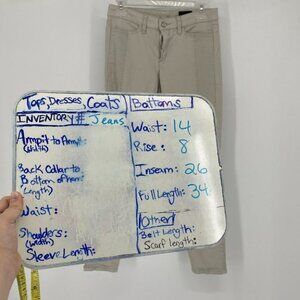 Tops, Dresses, Coats
INVENTORY # Jeans
Armpit to Armpit:
(Width)
Back Collar to
Bottom of Hem:
(Length)
Waist:
Shoulders:
(Width)
Sleeve Length:
Bottoms
Waist: 14
Rise: 8
Inseam: 26
Full Length: 34
Other
Belt Length:
Scarf Length: